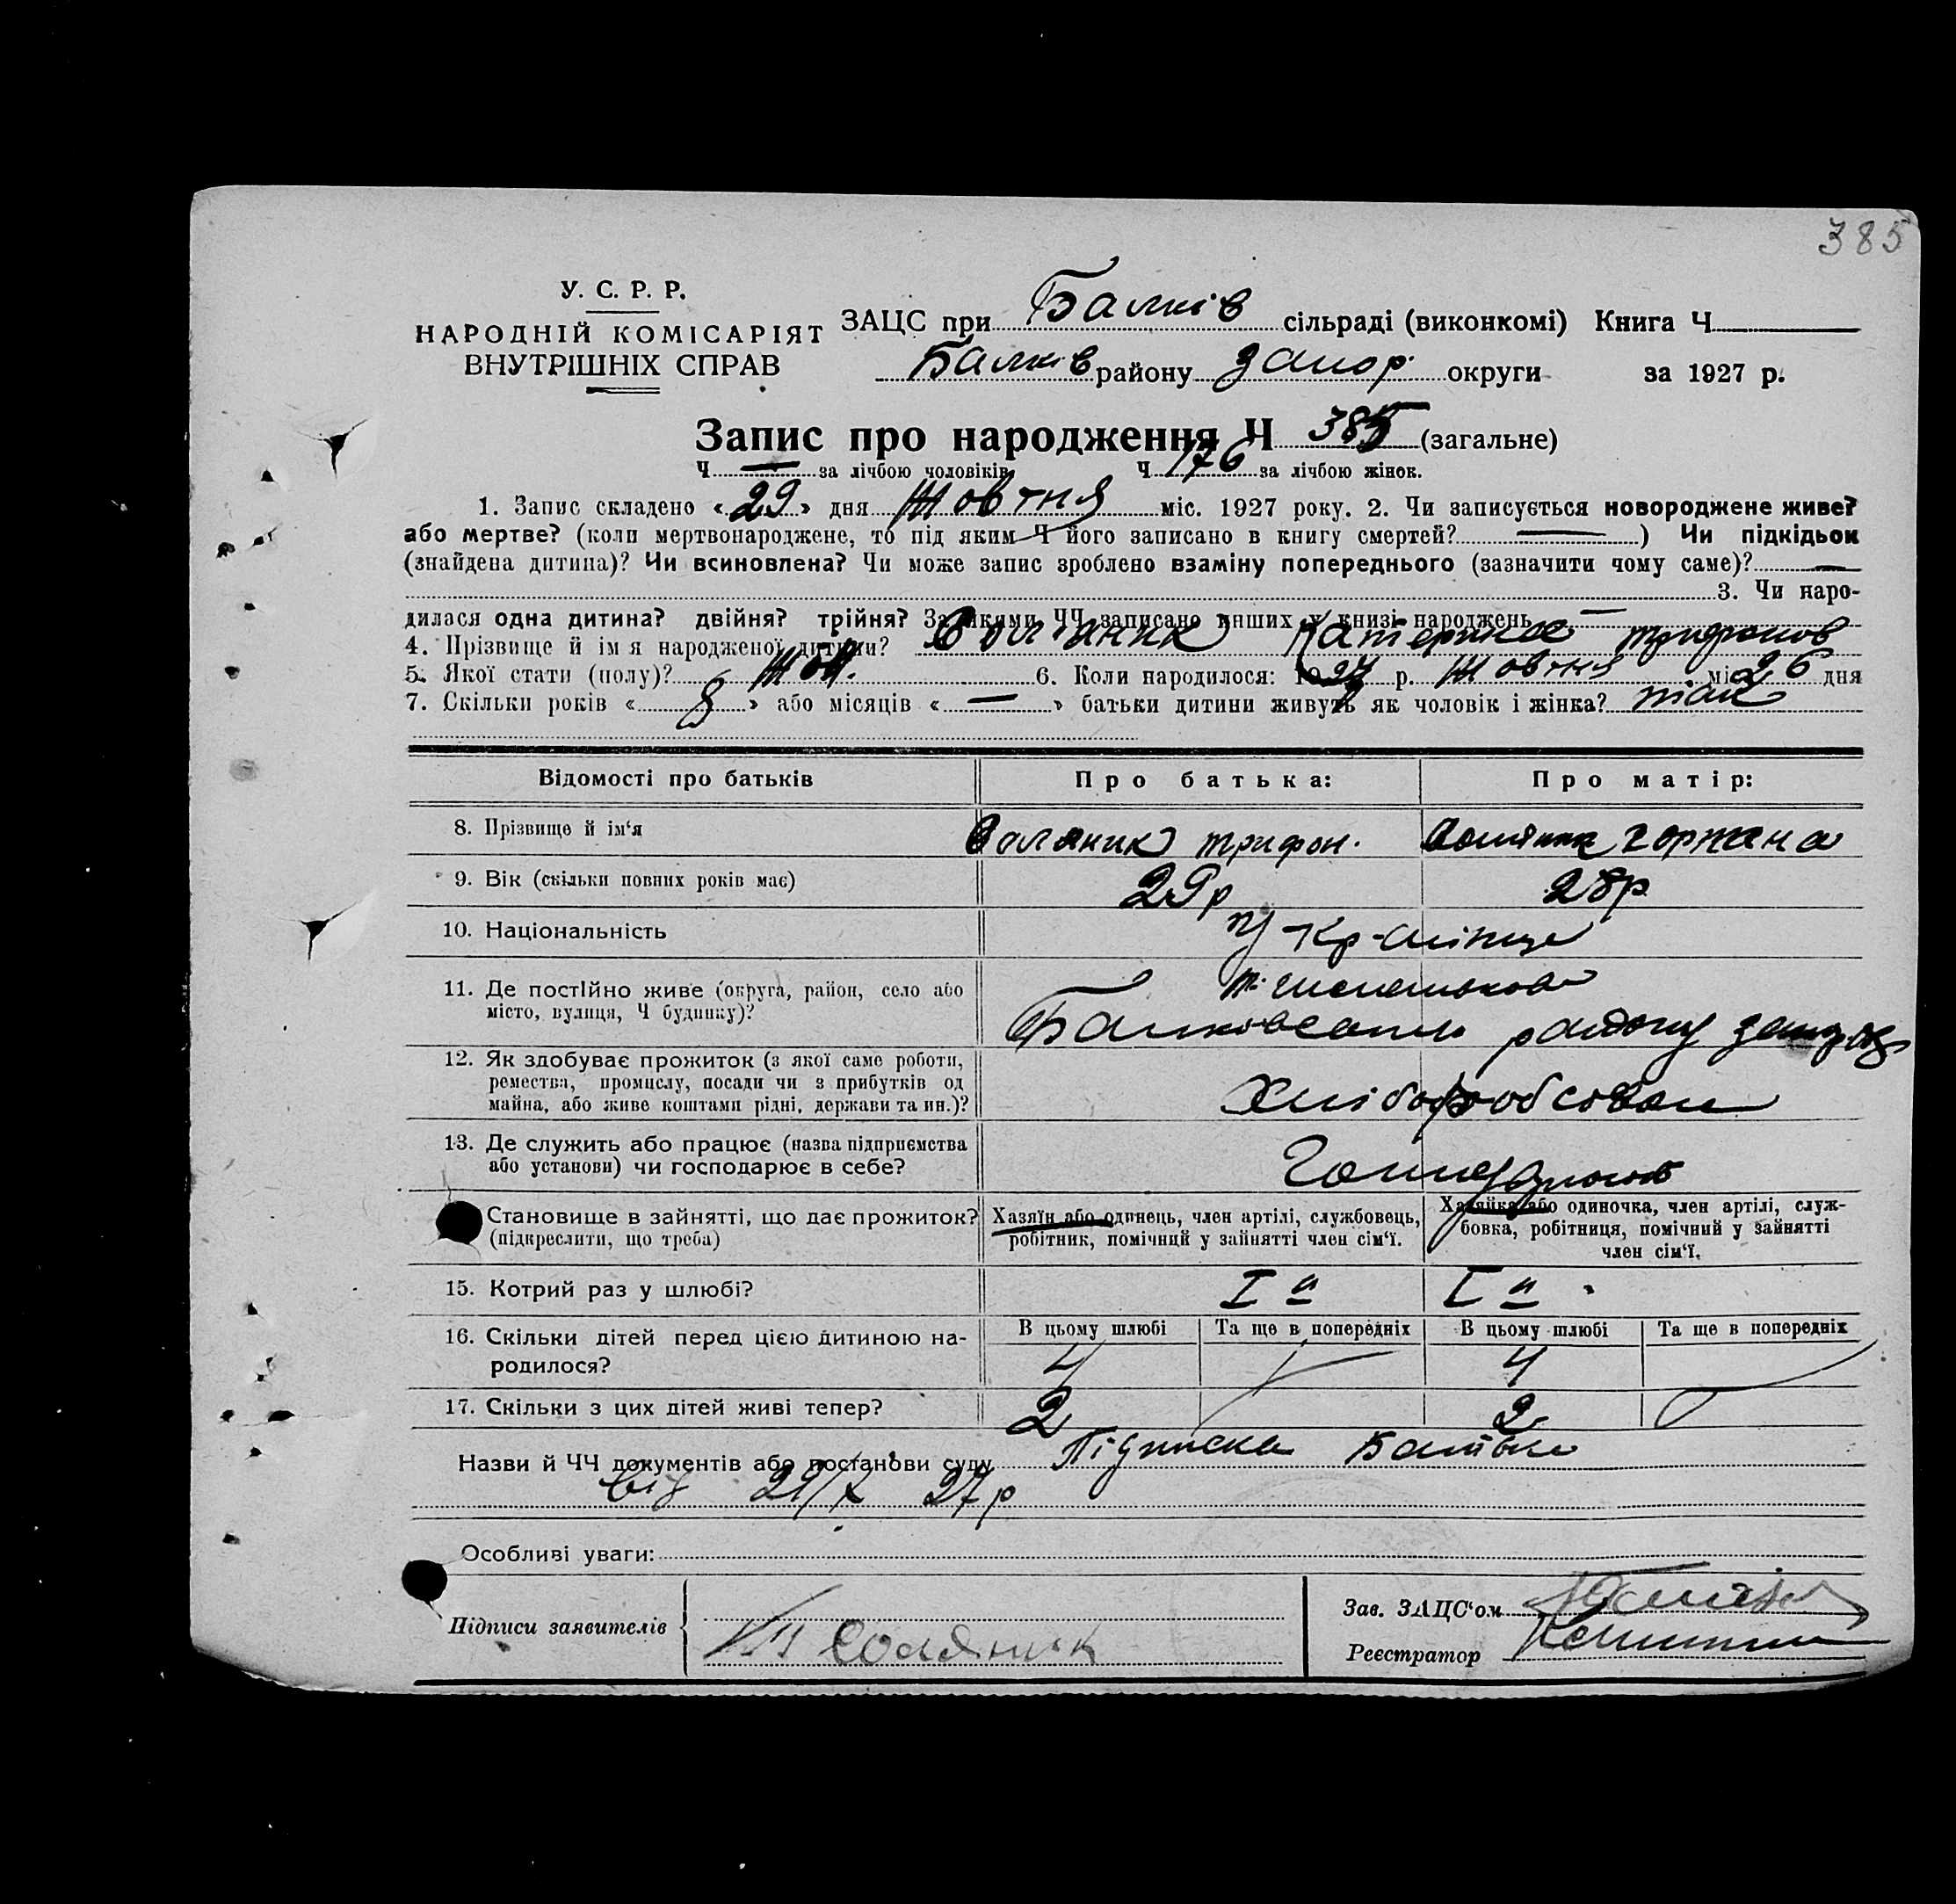 385
У. С. Р. Р.
НАРОДНІЙ КОМІСАРІЯТ
ВНУТРІШНІХ СПРАВ
ЗАЦС при Балків сільраді (виконкомі) Книга Ч
Балків району Запор. округи за 1927 р.
Запис про народження Ч 385 (загальне)
Ч — за лічбою чоловіків Ч 176 за лічбою жінок.
1. Запис складено «29» дня Жовтня міс. 1927 року. 2. Чи записується новороджене живе?
або мертве? (коли мертвонароджене, то під яким Ч його записано в книгу смертей? — ) Чи підкідьок
(знайдена дитина)? Чи всиновлена? Чи може запис зроблено взаміну попереднього (зазначити чому саме)? —
3. Чи наро-
дилася одна дитина? двійня? трійня? За якими ЧЧ записано інших у книзі народжень —
4. Прізвище й ім'я народженої дитини? Соляник Катерина Трифонов
5. Якої стати (полу)? Жон. 6. Коли народилося: 1927 р. Жовтня міс 26 дня
7. Скільки років «8» або місяців « — » батьки дитини живуть як чоловік і жінка? так
Відомості про батьків Про батька: Про матір:
8. Прізвище й ім'я Соляник Трифон. Солянык Горпина
9. Вік (скільки повних років має) 29р 28р
10. Національність Укр-аїнце
11. Де постійно живе (округа, район, село або
місто, вулиця, Ч будинку)?
Балковсого району
12. Як здобуває прожиток (з якої саме роботи,
ремества, промислу, посади чи з прибутків од
майна, або живе коштами рідні, держави та ин.)?
13. Де служить або працює (назва підприємства
або установи) чи господарює в себе?
Становище в зайнятті, що дає прожиток?
(підкреслити, що треба)
Хазяїн або одинець, член артілі, службовець,
робітник, помічний у зайнятті член сім'ї.
Хазяйка або одиночка, член артілі, служ-
бовка, робітниця, помічний у зайнятті
член сім'ї.
15. Котрий раз у шлюбі? I й I й
16. Скільки дітей перед цією дитиною на-
родилося?
В цьому шлюбі Та ще в попередніх В цьому шлюбі Та ще в попередніх
4 4
17. Скільки з цих дітей живі тепер? 2 2
Назви й ЧЧ документів або постанови суду Підписка Батька
від 29/X 27 р
Особливі уваги:
Підписи заявителів
Соляник
Зав. ЗАЦС'ом
Реєстратор